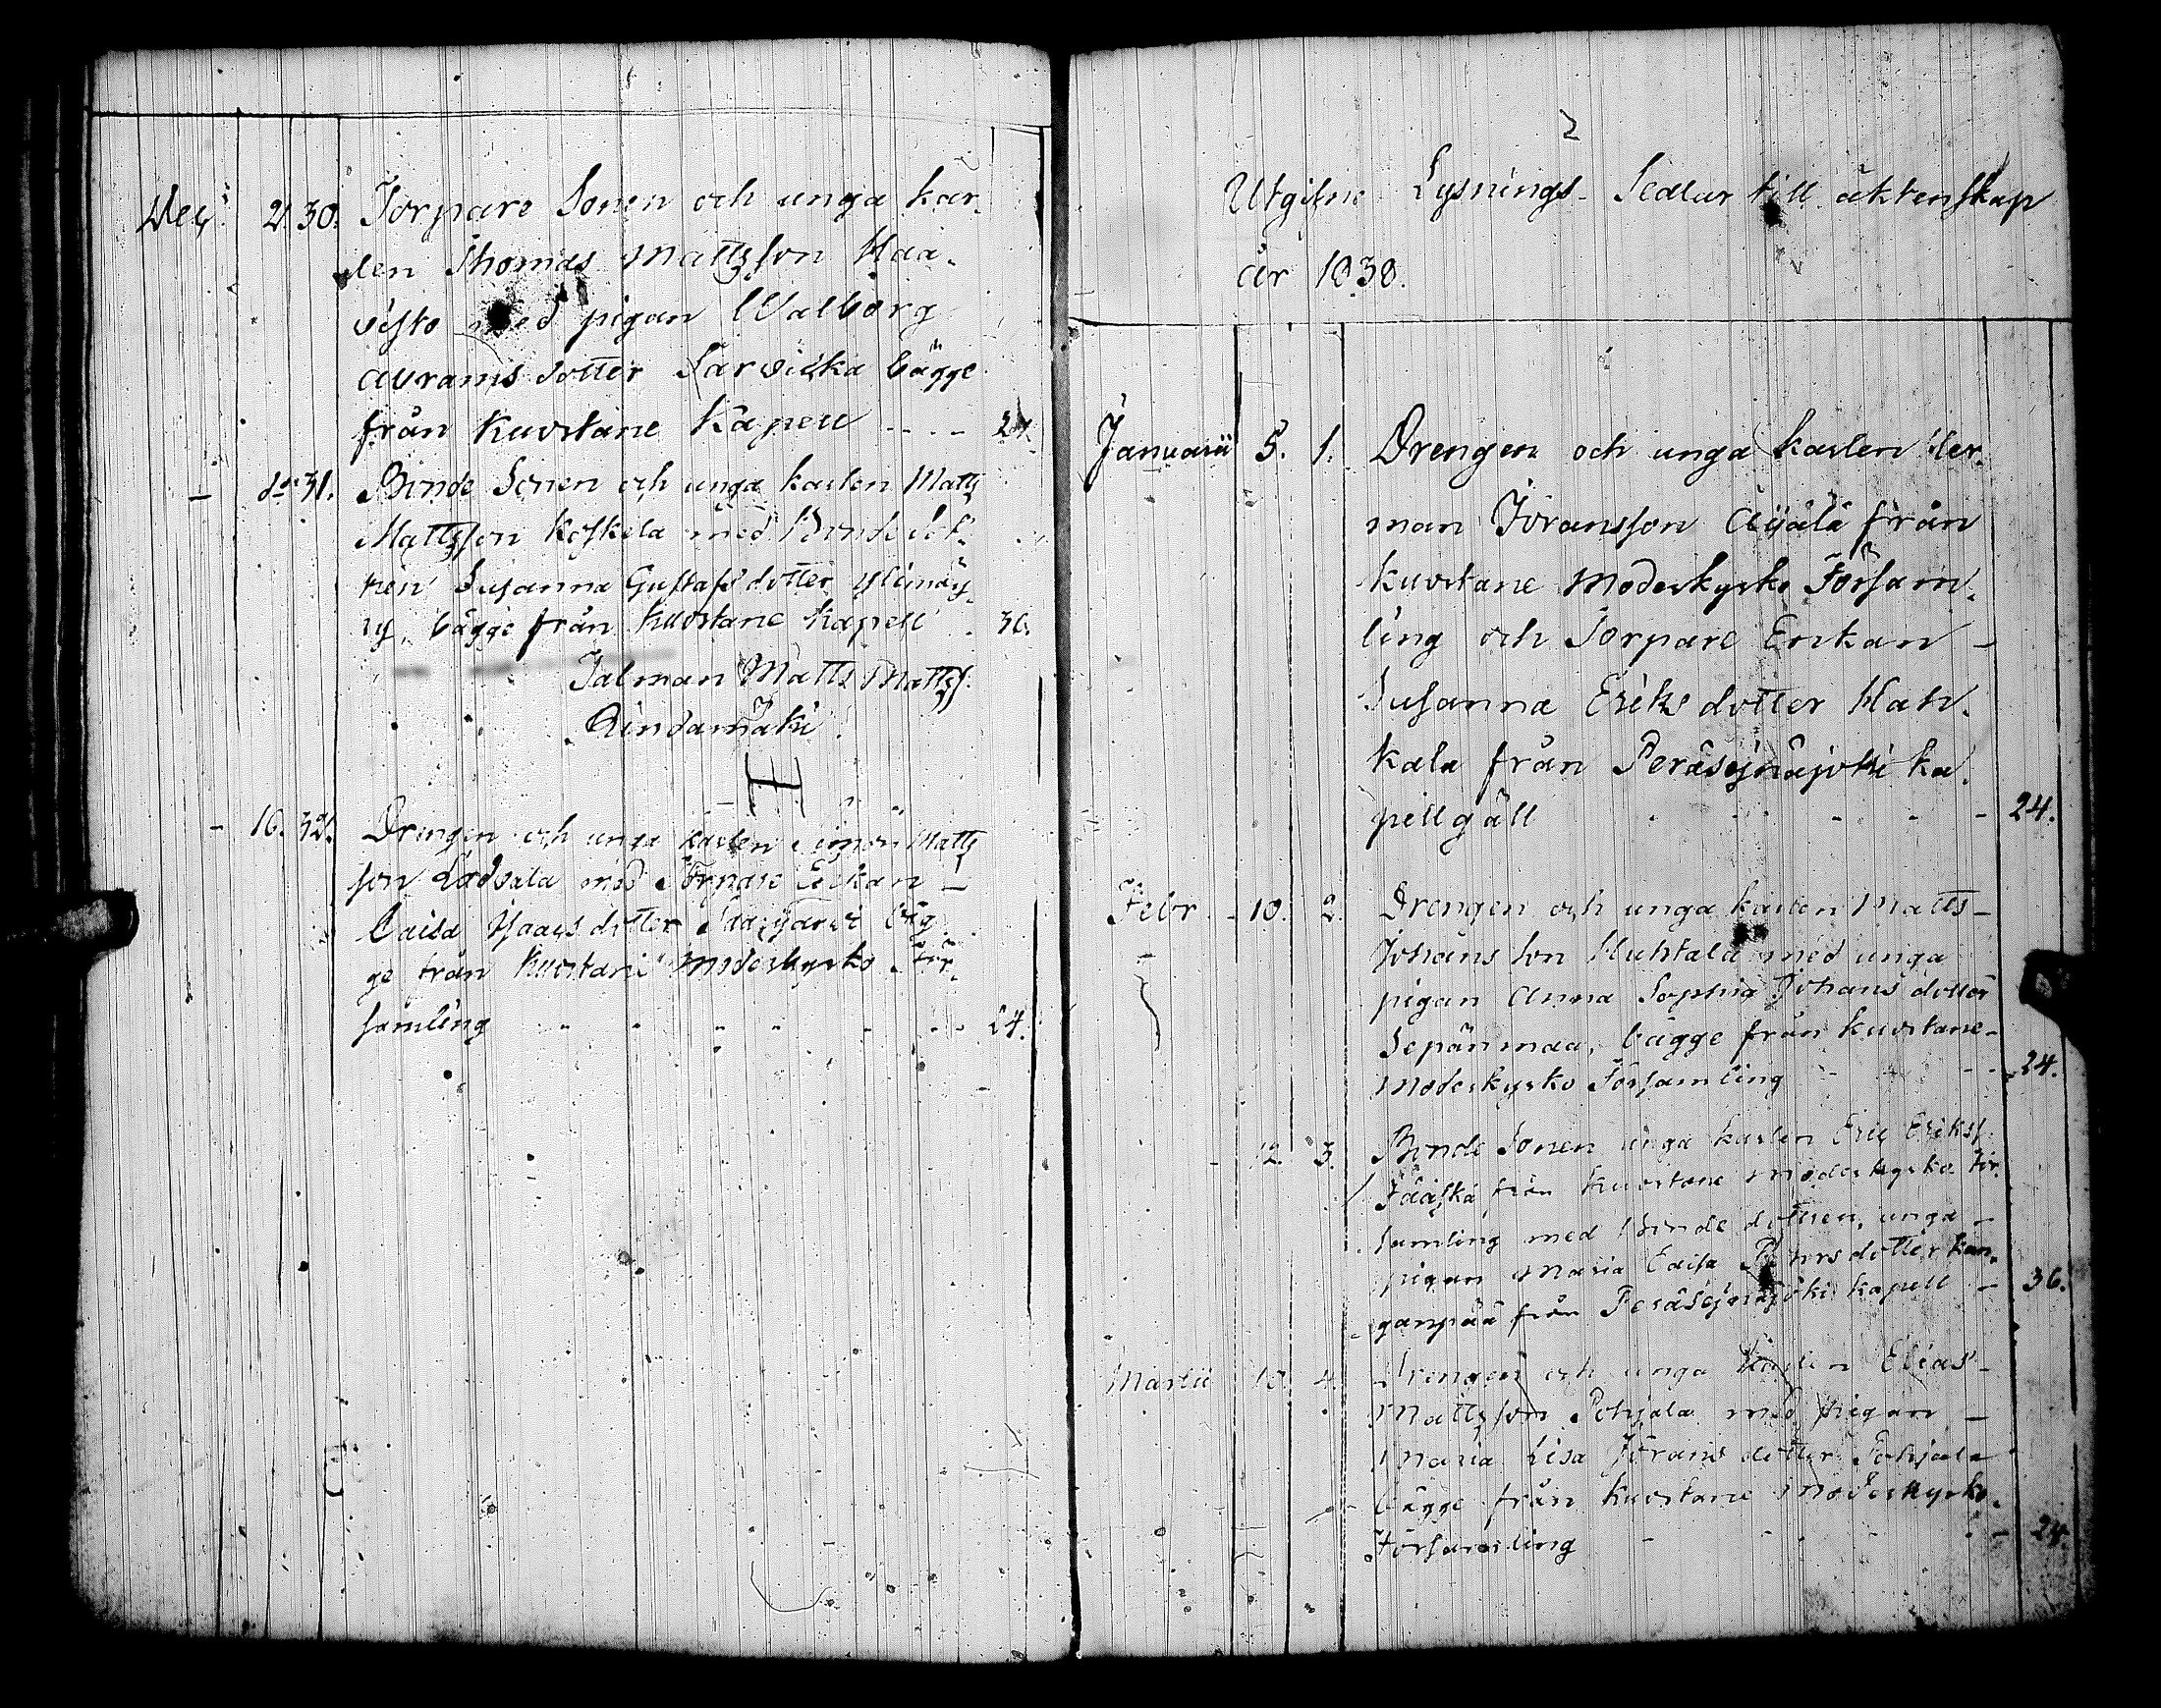 Decr 2. 30. Torpare Sonen och unga kar-
len Thomas Mattsson Haa-
visto med pigan Walborg
Abrams dotter Sarvicka bägge
från Kuortane Kapell - - - 24.
— do 31. Bonde Sonen och unga karlen Matts
Mattsson Koskela med Bonde dot-
tren Susanna Gustafs dotter Ylimäy-
ry, bägge från Kuortane Kapell . 36.
Talman Matts Matts.
Rindamäki.
- 16. 32. Drengen och unga karlen Simon Matts
son med Torpare Enkan —
Caisa Isaacs dotter bäg-
ge från Kuortane Moderkyrko För-
samling - - - - - - 24.
2
Utgifne Lysnings-Sedlar till äktenskap
år 1838.
Januarii 5. 1. Drengen och unga karlen Her-
man Jöransson Äijälä från
Kuortane Moderkyrko Försam-
ling och Torpare Enkan —
Susanna Eriks dotter Hah-
kala från Peräsejnäjoki Ka-
pellgäll - - - - 24.
Febr. - 10. 2. Drengen och unga karlen Matts —
Johans son Huhtala med unga
pigan Anna Sophia Johans dotter
Sepänmaa, bägge från Kuortane —
Moderkyrko Församling - - - 24.
- 12. 3. Bonde Sonen unga karlen Eric Eriksf.
Jääskä från Kuortane Moderkyrko För-
samling med Bonde dottren, unga —
pigan Maria Caisa dotter Kan-
ganpää från Peräsejnäjoki Kapell — 36.
Martii 10. 4. Drengen och unga karlen Elias —
Mattsson Pohjala med pigan —
Maria Lisa Jörans dotter Pohjala
bägge från Kuortane Moderkyrko-
Församling - - - - 24.